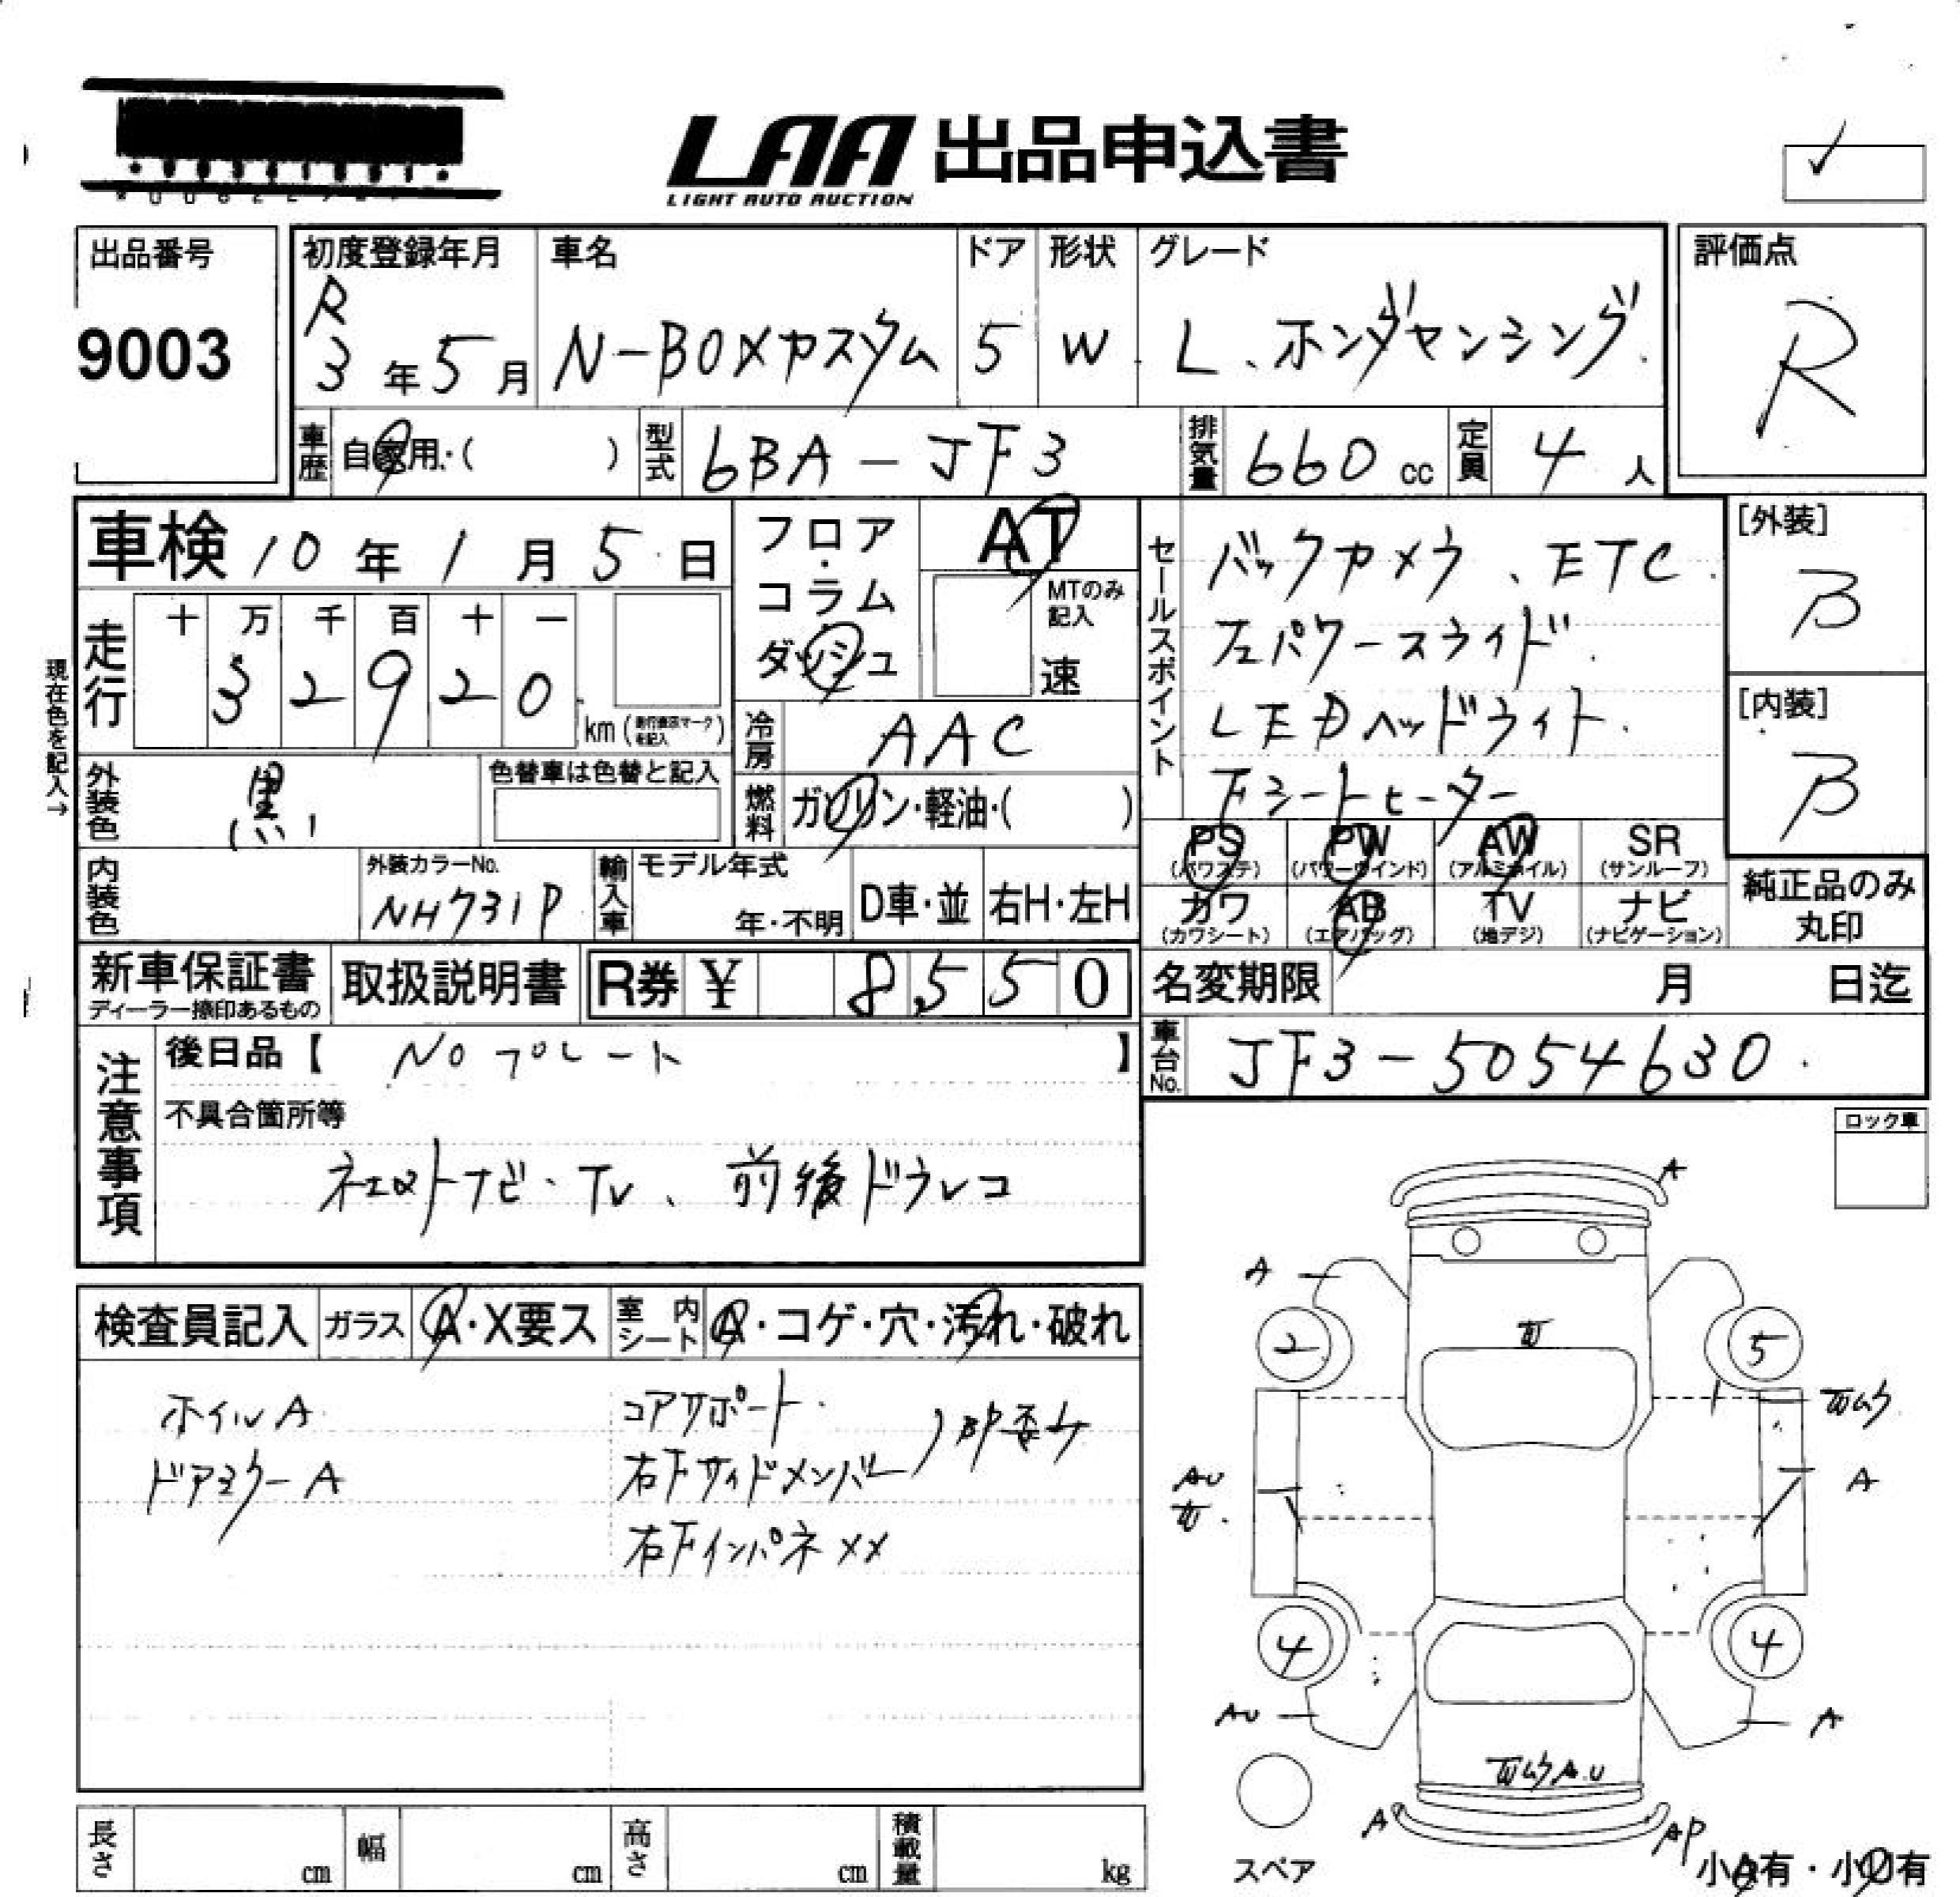 LAA 出品申込書
LIGHT AUTO AUCTION
出品番号
9003
初度登録年月
R
3年5月
車名
N-BOXカスタム
ドア
5
形状
W
グレード
L、ホンダセンシング
評価点
R
車歴
自家用・( )
型式
6BA-JF3
排気量
660 cc
定員
4人
車検 10年1月5日
フロア・コラム
ダッシュ
AT
MTのみ記入
速
セールスポイント
バックカメラ、ETC
左パワースライド
LEDヘッドライト
Fシートヒーター
[外装]
B
[内装]
B
現在色を記入→
走行
十 万 千 百 十 一
3 2 9 2 0
km
冷房
AAC
燃料
ガソリン・軽油・( )
外装色
黒
色替車は色替と記入
内装色
外装カラーNo.
NH731P
輸入車
モデル年式
年・不明
D車・並
右H・左H
PS
(パワステ)
PW
(パワーウインド)
AW
(アルミホイル)
SR
(サンルーフ)
カワ
(カワシート)
AB
(エアバッグ)
TV
(地デジ)
ナビ
(ナビゲーション)
純正品のみ
丸印
新車保証書
ディーラー捺印あるもの
取扱説明書
R券 ¥ 8550
名変期限 月 日迄
車台No.
JF3-5054630
注意事項
後日品【 NOプレート 】
不具合箇所等
ネエクトナビ・TV、前後ドラレコ
ロック車
検査員記入
ガラス
A・X要ス
室内シート
A・コゲ・穴・汚れ・破れ
ホイルA
ドアミラーA
コアサポート
右Fサイドメンバー
右FインパネXX
A
A
2
5
A
4
4
A
A
AP
スペア
小A有・小U有
長さ cm
幅 cm
高さ cm
積載量 kg